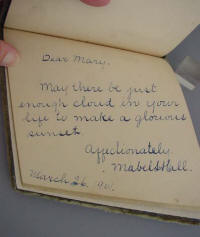 Dear Mary.
May there be just
enough cloud in your
life to make a glorious
sunset
Affectionately.
Mabel Hall.
March 26,